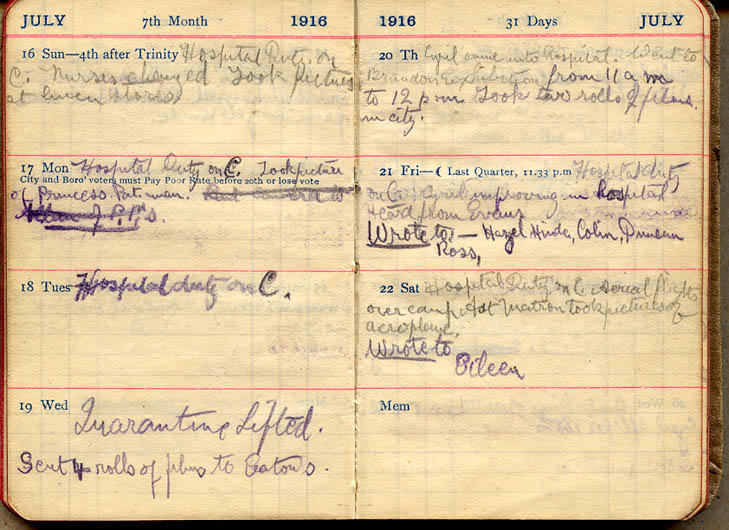 JULY 7th Month 1916
16 Sun—4th after Trinity Hospital Duty on
C. Nurses changed Took pictures
at Linen stores
17 Mon Hospital Duty on C. Took picture
City and Boro' voters must Pay Poor Rate before 20th or lose vote
of Princess Pat man.
of P.P.'s.
18 Tues Hospital duty on C.
19 Wed Quarantine Lifted.
Sent 4 rolls of films to Eatons.
1916 31 Days JULY
20 Th Cyril came into Hospital. Went to
Brandon Exhibition from 11 a m
to 12 p.m. Took two rolls of films
in city.
21 Fri—☾ Last Quarter, 11.33 p.m Hospital duty
on C. Cyril improving in hospital
Heard from Evans
Wrote to:— Hazel Hinde, Colin, Duncan
Ross,
22 Sat Hospital Duty on C. aerial flights
over camp Asst Matron took pictures of
aeroplane.
Wrote to
Eileen
Mem